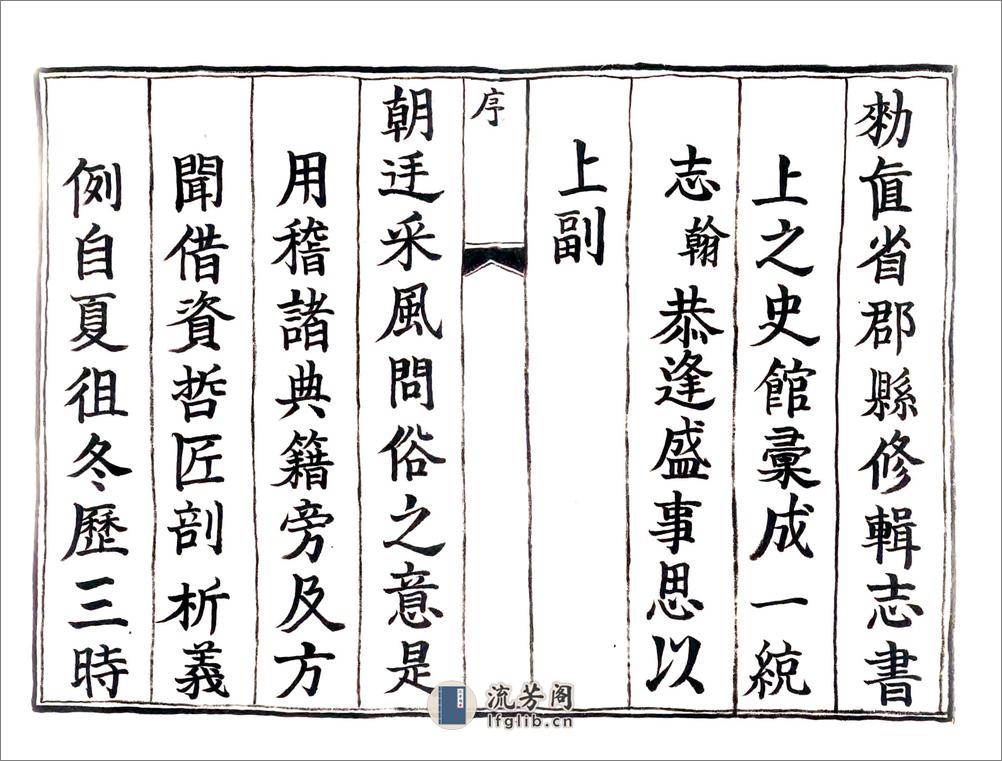 勑直省郡縣修輯志書
上之史館彙成一統
志翰恭逢盛事思以
上副
序
朝廷采風問俗之意是
用稽諸典籍旁及方
聞借資哲匠剖析義
例自夏徂冬歷三時
流芳阁
lfglib.cn